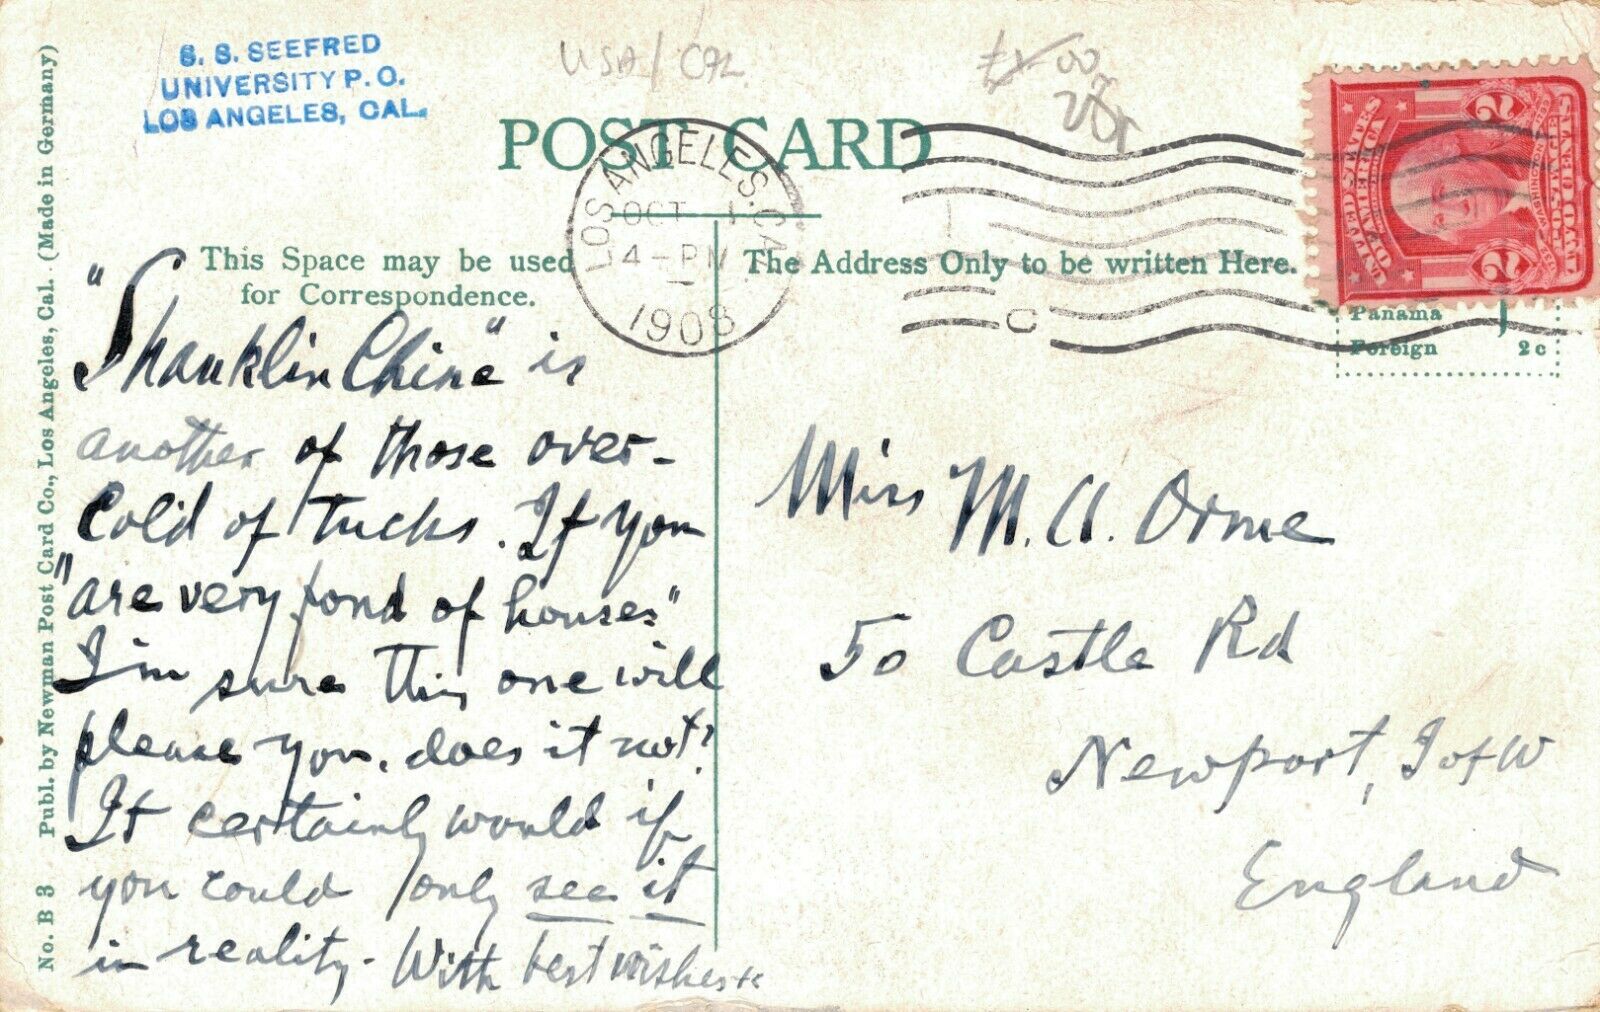 S. S. SEEFRED
UNIVERSITY P. O.
LOS ANGELES, CAL.
USA / CAL
POST CARD
LOS ANGELES, CAL.
OCT 1
4-PM
1908
This Space may be used
for Correspondence.
The Address Only to be written Here.
UNITED STATES OF AMERICA
WASHINGTON
2
2
Panama
Foreign 2c
C
"Shanklin Chine" is
another of those over-
Cold of Tucks. If you
"are very fond of houses"
I'm sure this one will
please you, does it not?
It certainly would if
you could only see it
in reality. With best wishes
Miss M. A. Orme
50 Castle Rd
Newport, I of W
England
No. B 3 Publ. by Newman Post Card Co., Los Angeles, Cal. (Made in Germany)